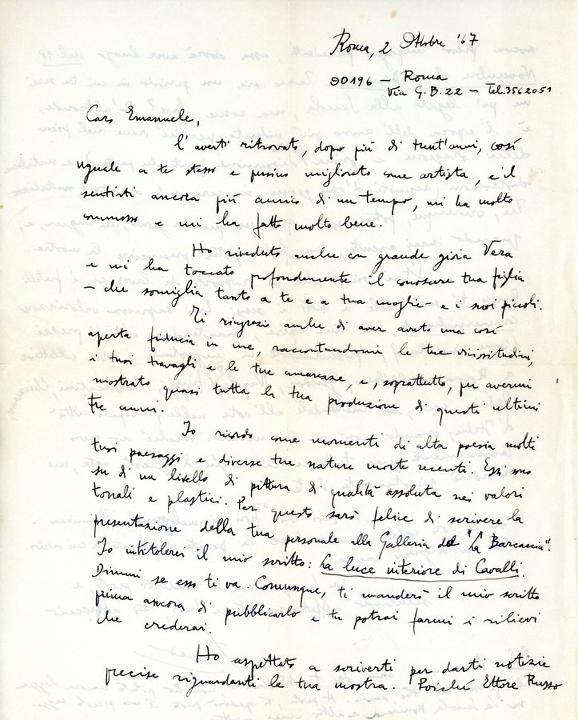 Roma, 2 Ottobre '67
00196 — Roma
Via G.B. 22 — Tel. 3562051
Caro Emanuele,
l'averti ritrovato, dopo più di trent'anni, così
uguale a te stesso e persino migliorato come artista, e il
sentirti ancora più amico di un tempo, mi ha molto
commosso e mi ha fatto molto bene.
Ho riveduto anche con grande gioia Vera
e mi ha toccato profondamente il conoscere tua figlia
— che somiglia tanto a te e a tua moglie — e i suoi piccoli.
Ti ringrazio anche di aver avuto una così
aperta fiducia in me, raccontandomi le tue vicissitudini,
i tuoi travagli e le tue amarezze, e, soprattutto, per avermi
mostrato quasi tutta la tua produzione di questi ultimi
tre anni.
Io ricordo come momenti di alta poesia molti
tuoi paesaggi e diverse tue nature morte recenti. Essi sono
su di un livello di pittura di qualità assoluta nei valori
tonali e plastici. Per questo sarò felice di scrivere la
presentazione della tua personale alla Galleria del "La Barcaccia".
Io intitolerei il mio scritto: La luce interiore di Cavalli.
Dimmi se esso ti va. Comunque, ti manderò il mio scritto
prima ancora di pubblicarlo e tu potrai farmi i rilievi
che crederai.
Ho aspettato a scriverti per darti notizie
precise riguardanti la tua mostra. Poiché Ettore Russo